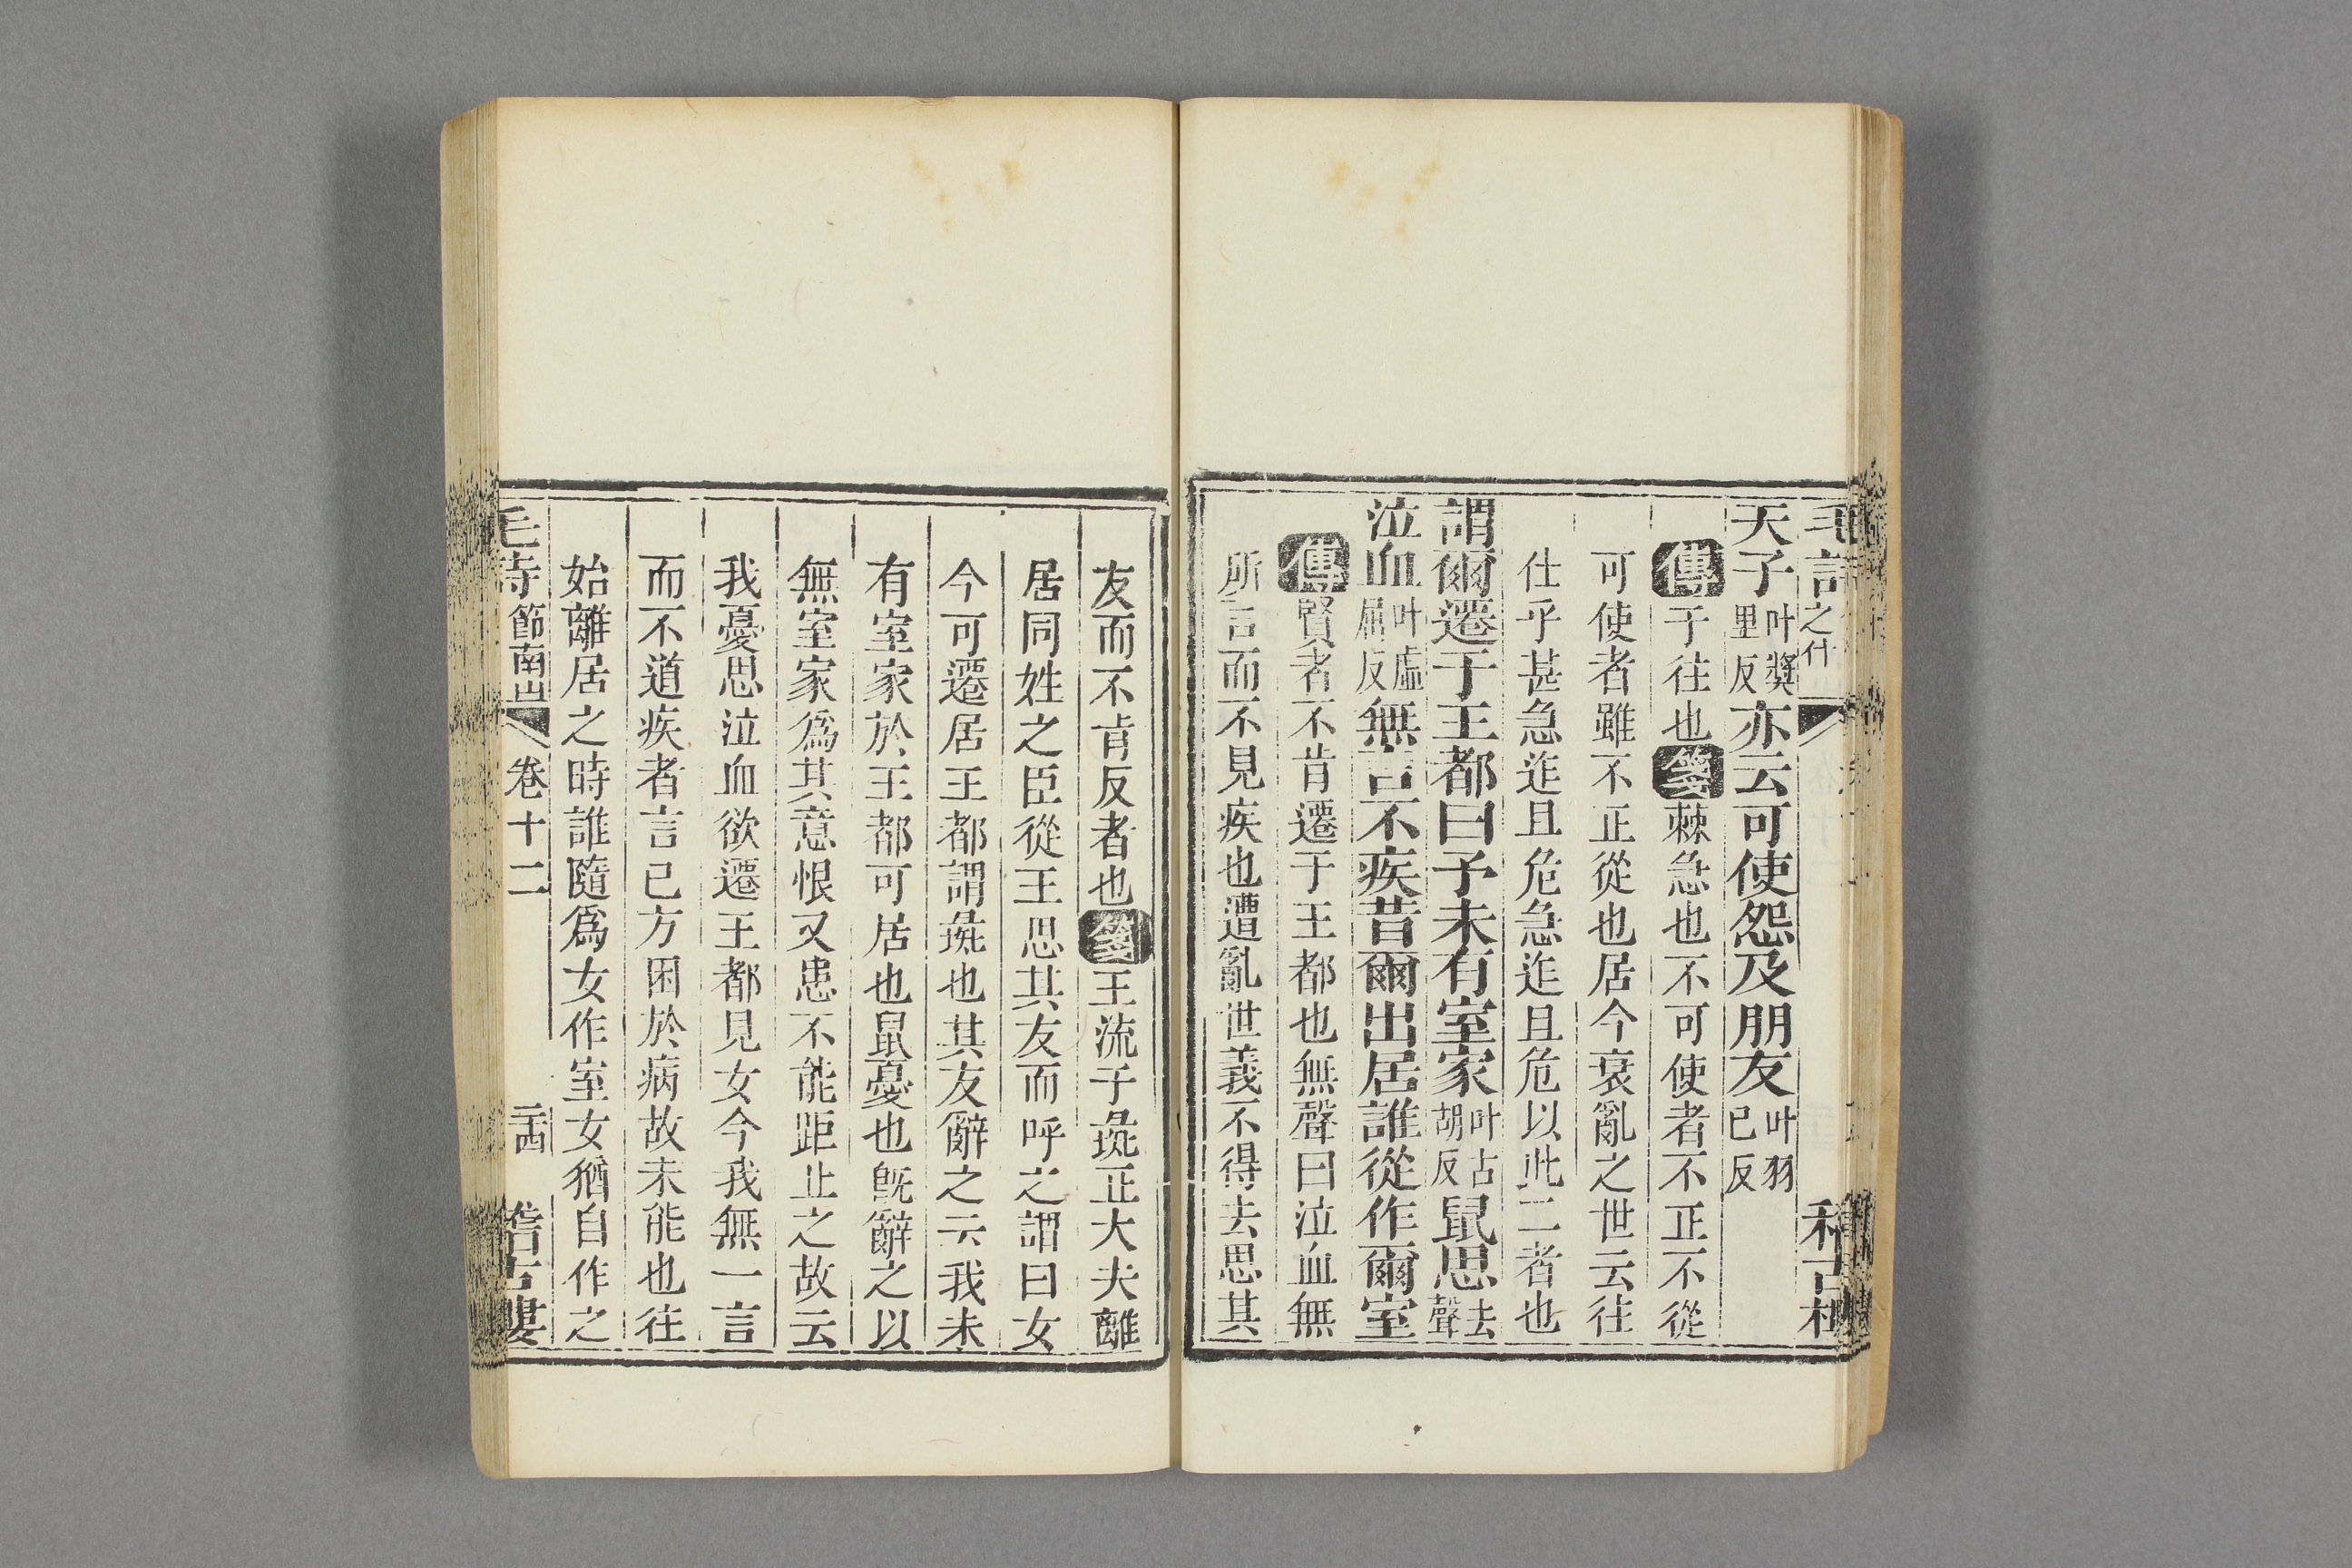 毛詩 之什
天子叶獎里反亦云可使怨及朋友叶羽已反
傳于往也箋棘急也不可使者不正不從
可使者雖不正從也居今衰亂之世云往
仕乎甚急迮且危急迮且危以此二者也
謂爾遷于王都曰予未有室家叶古胡反鼠思去聲
泣血叶虛屈反無言不疾昔爾出居誰從作爾室
傳賢者不肯遷于王都也無聲曰泣血無
所言而不見疾也遭亂世義不得去思其
友而不肯反者也箋王流于彘正大夫離
居同姓之臣從王思其友而呼之謂曰女
今可遷居王都謂彘也其友辭之云我未
有室家於王都可居也鼠憂也旣辭之以
無室家爲其意恨又患不能距止之故云
我憂思泣血欲遷王都見女今我無一言
而不道疾者言己方困於病故未能也往
始離居之時誰隨爲女作室女猶自作之
毛詩 節南山 卷十二 二十四 稽古樓